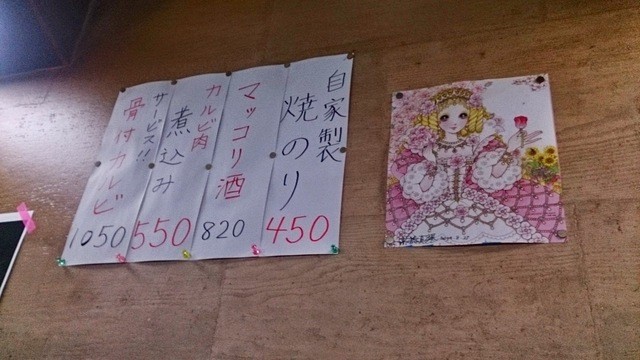 自家製
焼のり
450
マッコリ酒
820
カルビ肉
煮込み
550
サービス!!
骨付カルビ
1050